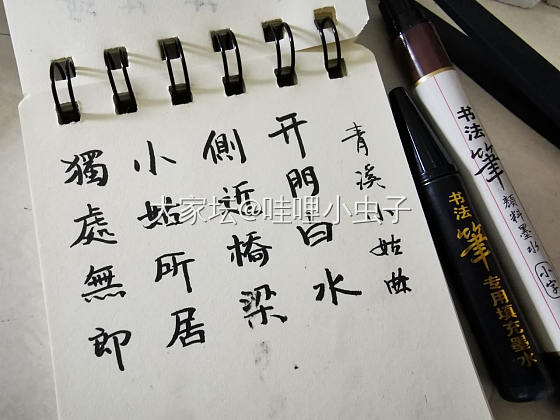 青溪小姑曲
开門白水
側近橋梁
小姑所居
獨處無郎
大家坛@哇哩小虫子
书法筆
顔料墨水
小字
书法筆
专用填充墨水